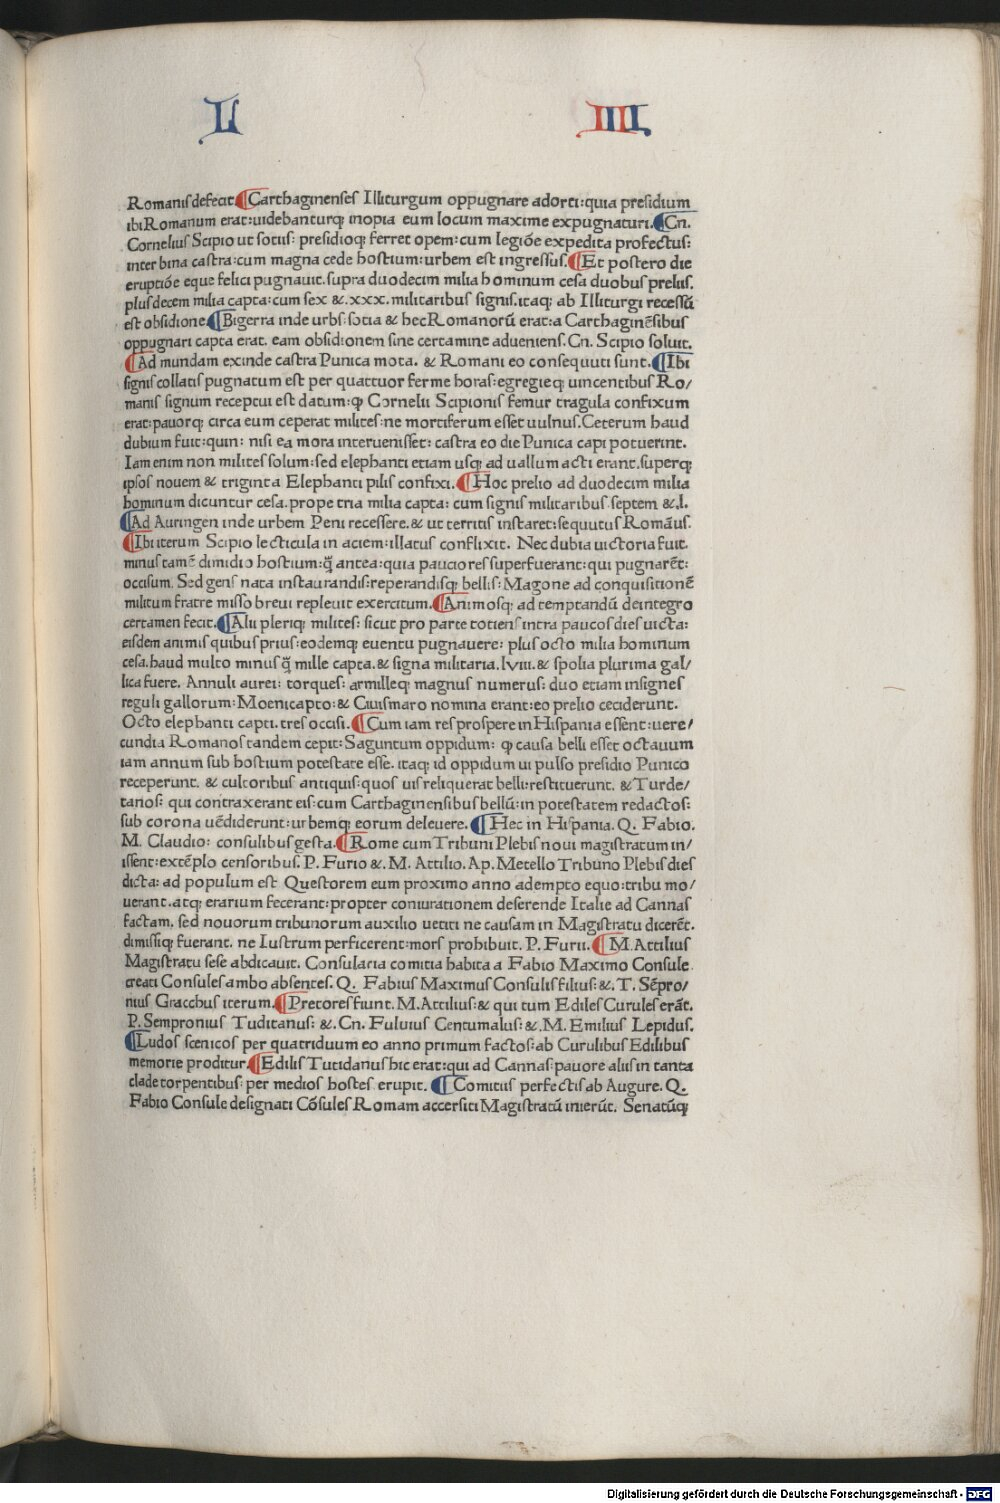 L IIII
Romanis defecit. ¶ Carthaginenses Illiturgum oppugnare adorti: quia presidium
ibi Romanum erat: uidebanturq; inopia eum locum maxime expugnaturi. ¶ Cn.
Cornelius Scipio ut sotiis: presidioq; ferret opem: cum legiōe expedita profectus:
inter bina castra: cum magna cede hostium: urbem est ingressus. ¶ Et postero die
eruptiōe eque felici pugnauit. supra duodecim milia hominum cesa duobus preliis.
plus decem milia capta: cum sex &. xxx. militaribus signis. itaq; ab Illiturgi recessū
est obsidione. ¶ Bigerra inde urbs: sotia & hec Romanorū erat: a Carthaginēsibus
oppugnari capta erat. eam obsidionem sine certamine adueniens. Cn. Scipio soluit.
¶ Ad mundam exinde castra Punica mota. & Romani eo consequuti sunt. ¶ Ibi
signis collatis pugnatum est per quattuor ferme horas: egregieq; uincentibus Ro/
manis signum receptui est datum: ꝙ Cornelii Scipionis femur tragula confixum
erat: pauorq; circa eum ceperat milites: ne mortiferum esset uulnus. Ceterum haud
dubium fuit: quin: nisi ea mora interuenisset: castra eo die Punica capi potuerint.
Iam enim non milites solum: sed elephanti etiam usq; ad uallum acti erant. superq;
ipsos nouem & triginta Elephanti pilis confixi. ¶ Hoc prelio ad duodecim milia
hominum dicuntur cesa. prope tria milia capta: cum signis militaribus septem &. l.
¶ Ad Auringen inde urbem Peni recessere. & ut territis instaret: sequutus Romāus.
¶ Ibi iterum Scipio lecticula in aciem: illatus conflixit. Nec dubia uictoria fuit.
minus tamē dimidio hostium: q̄ antea: quia pauciores superfuerant: qui pugnarēt:
occisum. Sed gens nata instaurandis: reperandisq; bellis: Magone ad conquisitionē
militum fratre misso breui repleuit exercitum. ¶ Animosq; ad temptandū deintegro
certamen fecit. ¶ Alii pleriq; milites: sicut pro parte totiens intra paucos dies uicta:
eisdem animis quibus prius: eodemq; euentu pugnauere: plus octo milia hominum
cesa. haud multo minus q̄ mille capta. & signa militaria. lviii. & spolia plurima gal/
lica fuere. Annuli aurei: torques: armilleq; magnus numerus: duo etiam insignes
reguli gallorum: Moenicapto: & Ciuismaro nomina erant: eo prelio ceciderunt.
Octo elephanti capti. tres occisi. ¶ Cum iam res prospere in Hispania essent: uere/
cundia Romanos tandem cepit: Saguntum oppidum: ꝙ causa belli esset octauum
iam annum sub hostium potestate esse. itaq; id oppidum ui pulso presidio Punico
receperunt. & cultoribus antiquis: quos uis reliquerat belli: restituerunt. & Turde/
tanos: qui contraxerant eis: cum Carthaginensibus bellū: in potestatem redactos:
sub corona uēdiderunt: urbemq; eorum deleuere. ¶ Hec in Hispania. Q. Fabio.
M. Claudio: consulibus gesta. ¶ Rome cum Tribuni Plebis noui magistratum in/
issent: extēplo censoribus. P. Furio &. M. Attilio. Ap. Metello Tribuno Plebis dies
dicta: ad populum est Questorem eum proximo anno adempto equo: tribu mo/
uerant. atq; erarium fecerant: propter coniurationem deserende Italie ad Cannas
factam. sed nouorum tribunorum auxilio uetiti ne causam in Magistratu dicerēt.
dimissiq; fuerant. ne lustrum perficerent: mors prohibuit. P. Furii. ¶ M. Attilius
Magistratu sese abdicauit. Consularia comitia habita a Fabio Maximo Consule.
creati Consules ambo absentes. Q. Fabius Maximus Consulis filius: &. T. Sēpro/
nius Gracchus iterum. ¶ Pretores fiunt. M. Attilius: & qui tum Ediles Curules erāt.
P. Sempronius Tuditanus: &. Cn. Fuluius Centumalus: &. M. Emilius Lepidus.
¶ Ludos scenicos per quatriduum eo anno primum factos: ab Curulibus Edilibus
memorie proditur. ¶ Edilis Tutidanus hic erat: qui ad Cannas: pauore aliis in tanta
clade torpentibus: per medios hostes erupit. ¶ Comitiis perfectis ab Augure. Q.
Fabio Consule designati Cōsules Romam accersiti Magistratū inierūt. Senatūq;
Digitalisierung gefördert durch die Deutsche Forschungsgemeinschaft - DFG